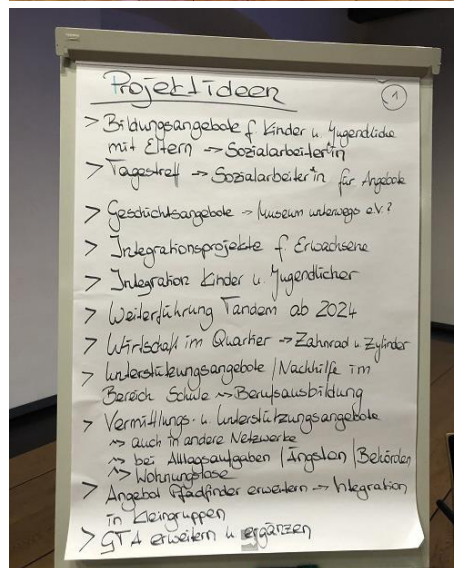 Projektideen
1
> Bildungsangebote f. Kinder u. Jugendliche
mit Eltern -> Sozialarbeiter*in
> Tagestreff -> Sozialarbeiter*in für Angebote
> Geschichtsangebote -> Museum unterwegs e.V.?
> Integrationsprojekte f. Erwachsene
> Integration Kinder u. Jugendlicher
> Weiterführung Tandem ab 2024
> Wirtschaft im Quartier -> Zahnrad u. Zylinder
> Unterstützungsangebote / Nachhilfe im
Bereich Schule ~> Berufsausbildung
> Vermittlungs- u. Unterstützungsangebote
~> auch in andere Netzwerke
~> bei Alltagsaufgaben / Ängsten / Behörden
~> Wohnungslose
> Angebot Pfadfinder erweitern -> Integration
in Kleingruppen
> GTA erweitern u. ergänzen